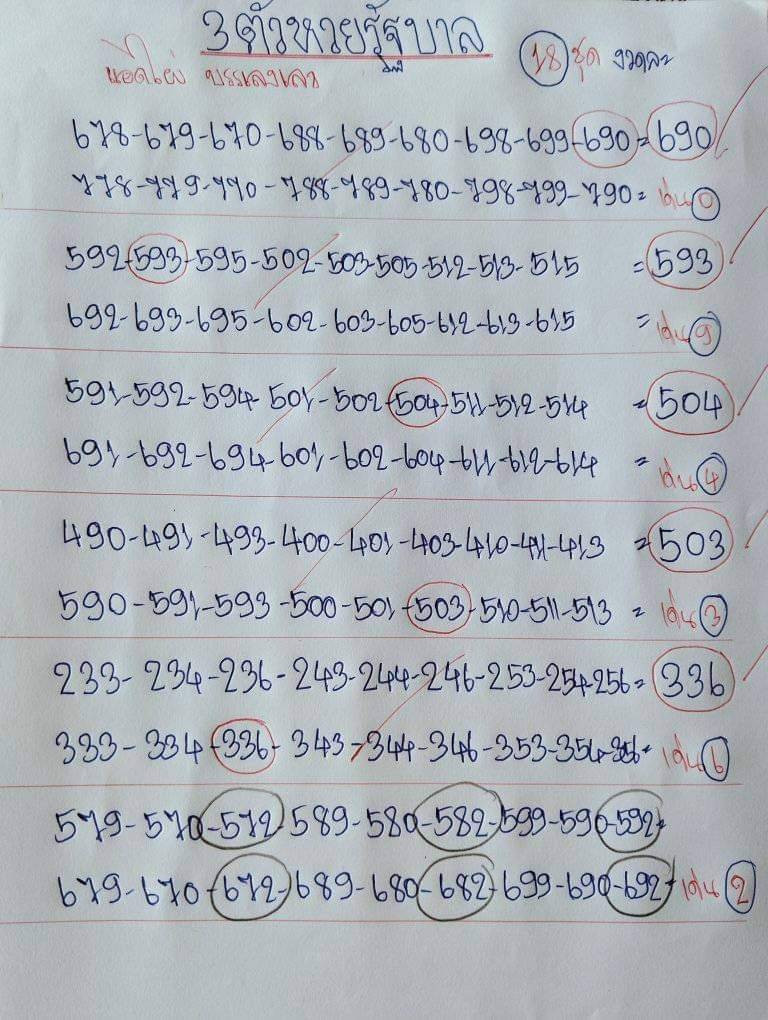 3ตัวหวยรัฐบาล
18 ชุด งวดละ
แอดไลน์ บรรเลงเลว
678-679-670-688-689-680-698-699-690=690
778-779-770-788-789-780-798-799-790= เด่น 0
592-593-595-502-503-505-512-513-515 =593
692-693-695-602-603-605-612-613-615 = เด่น 9
591-592-594-501-502-504-511-512-514 =504
691-692-694-601-602-604-611-612-614 = เด่น 4
490-491-493-400-401-403-410-411-413 =503
590-591-593-500-501-503-510-511-513 = เด่น 3
233-234-236-243-244-246-253-254-256=336
333-334-336-343-344-346-353-354-356= เด่น 6
579-570-572-589-580-582-599-590-592=
679-670-672-689-680-682-699-690-692= เด่น 2